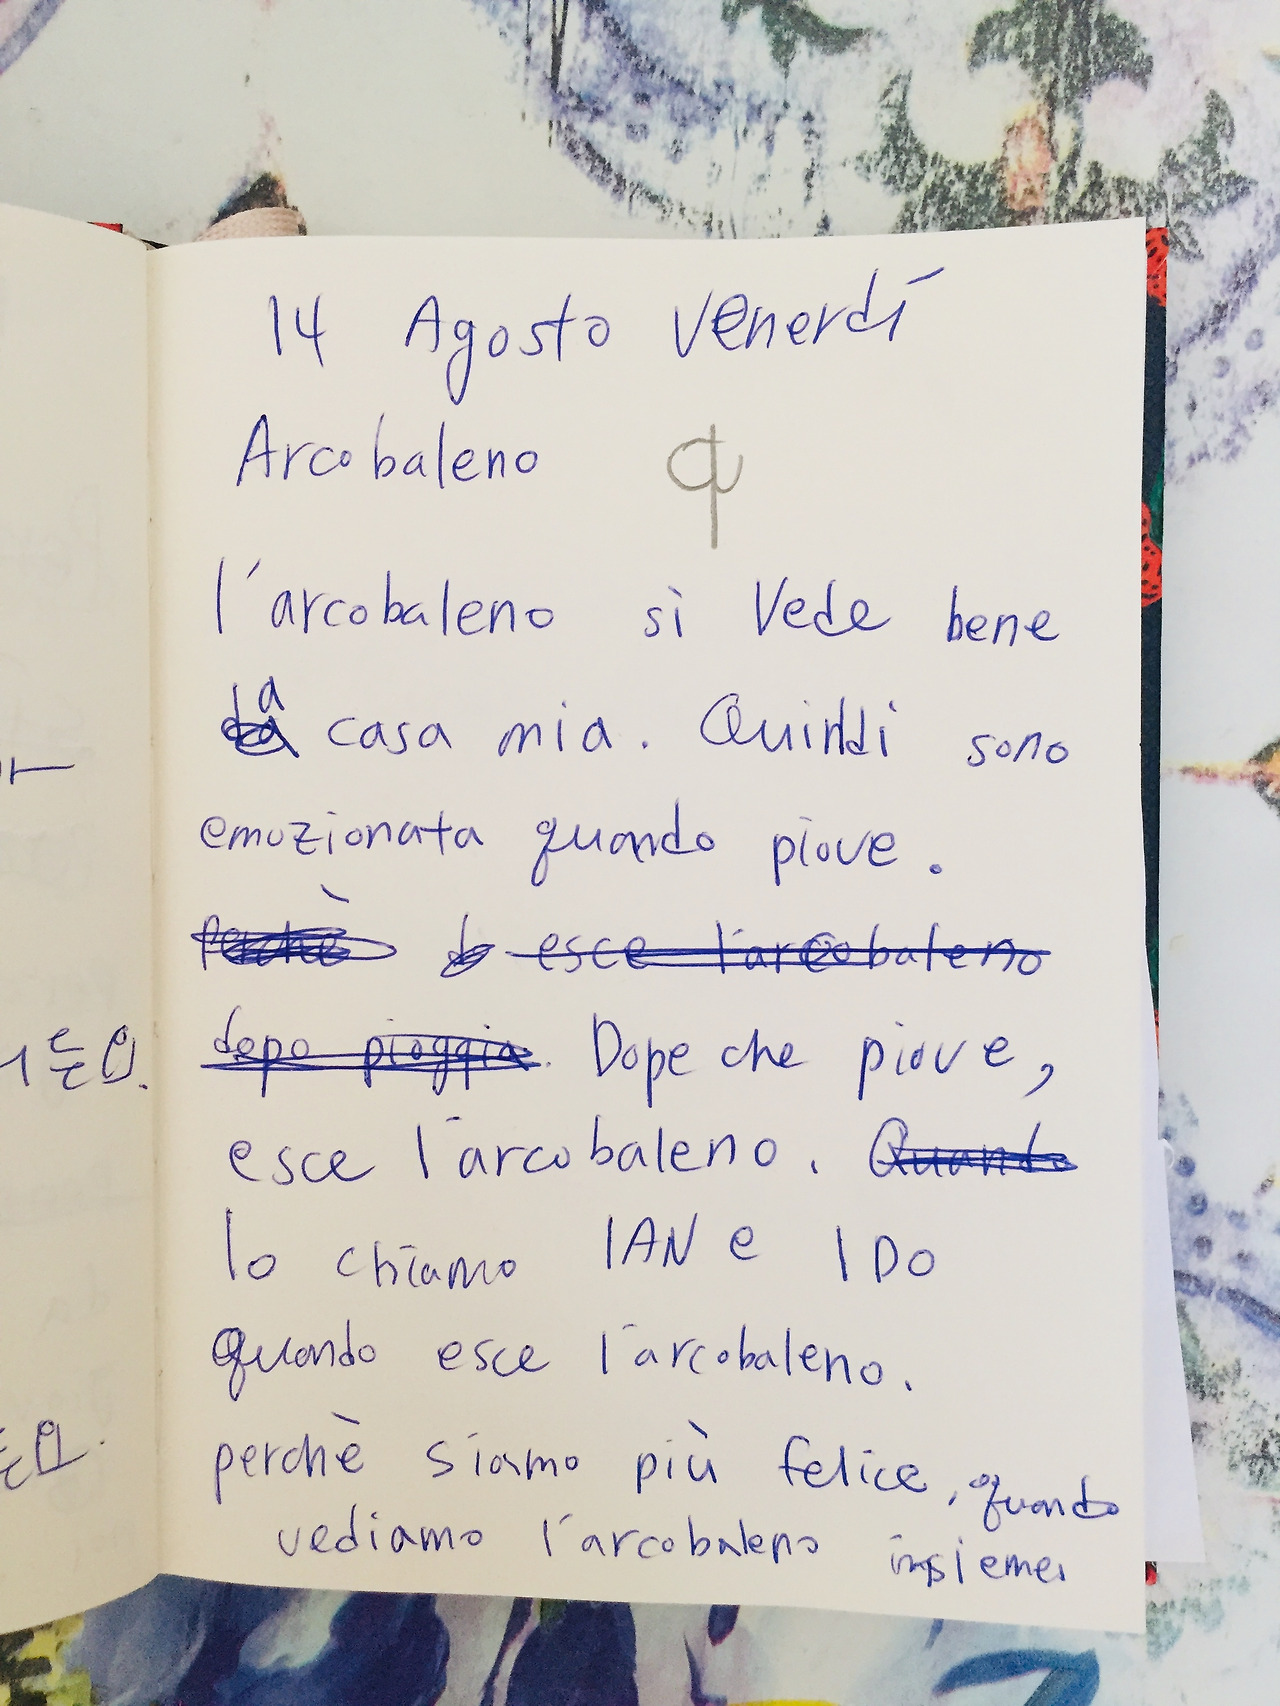 14 Agosto venerdí
Arcobaleno
l'arcobaleno sì vede bene
da casa mia. Quindi sono
emozionata quando piove.
perchè d esce l'arcobaleno
dopo pioggia. Dope che piove,
esce l'arcobaleno. Quando
lo chiamo IAN e IDO
quando esce l'arcobaleno.
perchè siamo più felice, quando
vediamo l'arcobaleno insieme.